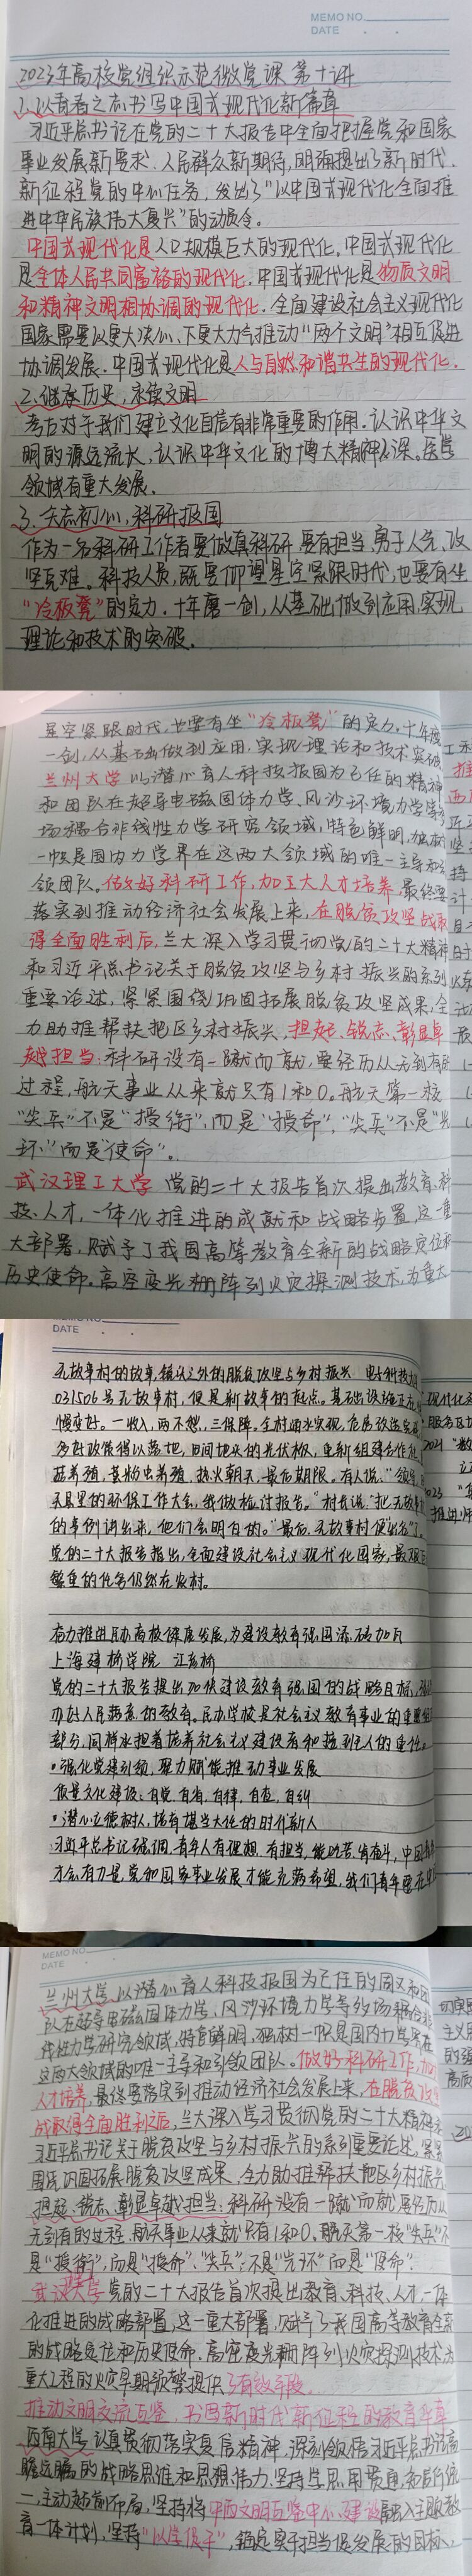 MEMO NO.
DATE
2023年高校党组织示范微党课 第十讲
1.以青春之志书写中国式现代化新篇章
习近平总书记在党的二十大报告中全面把握党和国家
事业发展新要求、人民群众新期待,明确提出了新时代
新征程党的中心任务,发出了“以中国式现代化全面推
进中华民族伟大复兴”的动员令。
中国式现代化是人口规模巨大的现代化。中国式现代化
是全体人民共同富裕的现代化。中国式现代化是物质文明
和精神文明相协调的现代化。全面建设社会主义现代化
国家需要以更大决心、下更大力气推动“两个文明”相互促进
协调发展。中国式现代化是人与自然和谐共生的现代化。
2.继承历史,永续文明
考古对于我们建立文化自信有非常重要的作用。认识中华文
明的源远流长,认识中华文化的博大精深。医学
领域有重大发展。
3.矢志初心,科研报国
作为一名科研工作者要做真科研,要有担当,勇于人先、攻
坚克难。科技人员,既要仰望星空紧跟时代,也要有坐
“冷板凳”的定力。十年磨一剑,从基础做到应用,实现
理论和技术的突破。
星空紧跟时代,也要有坐“冷板凳”的定力。十年磨
一剑,从基础做到应用,实现理论和技术突破
兰州大学 以潜心育人科技报国为己任的精神
和团队在超导电磁固体力学、风沙环境力学等多
场耦合非线性力学研究领域,特色鲜明,独树
一帜是国内力学界在这两大领域的唯一主导和引
领团队。做好科研工作,加大人才培养,最终要
落实到推动经济社会发展上来,在脱贫攻坚战取
得全面胜利后,兰大深入学习贯彻党的二十大精神
和习近平总书记关于脱贫攻坚与乡村振兴的系列
重要论述,紧紧围绕巩固拓展脱贫攻坚成果,全
力助推帮扶地区乡村振兴,担起、锐志、彰显卓
越担当:科研没有一蹴而就,要经历从无到有的
过程,航天事业从来就只有1和0。航天第一校
“尖兵”不是“授衔”,而是“授命”,“尖兵”不是“光
环”而是“使命”。
武汉理工大学 党的二十大报告首次提出教育、科
技、人才,一体化推进的成就和战略步署,这一重
大部署,赋予了我国高等教育全新的战略定位和
历史使命。高密度光栅阵列火灾探测技术,为重大
DATE
无故事村的故事,镜头之外的脱贫攻坚与乡村振兴 电子科技大
031506号无故事村,便是新故事的起点。基础设施正在
慢变好。一收入,两不愁,三保障,全村通水实现,危房改造完
多好政策得以落地,田间地头的光伏板,重新组建合作社
菇养殖,黄粉虫养殖,热火朝天,最后期限。有人说,“
天县里的环保工作大会,我做检讨报告。”村长说“把无故事
的事例讲出来,他们会明白的。”最后,无故事村便“出名”了。
党的二十大报告指出,全面建设社会主义现代化国家,最艰巨
繁重的任务仍然在农村。
奋力推进民办高校健康发展,为建设教育强国添砖加瓦
上海建桥学院 江彦桥
党的二十大报告提出加快建设教育强国的战略目标,
办好人民满意的教育。民办学校是社会主义教育事业的重要组
部分,同样承担着培养社会主义建设者和接班人的重任。
•强化党建引领,聚力赋能推动事业发展
质量文化建设:自觉,自省,自律,自查,自纠
•潜心立德树人,培育堪当大任的时代新人
习近平总书记强调,青年人有理想,有担当,能吃苦,肯奋斗,中国青年
才会有力量,党和国家事业发展才能充满希望,我们青年要在
MEMO NO.
DATE
兰州大学,以潜心育人科技报国为己任的周又和团
队在超导电磁固体力学、风沙环境力学等多场耦合非
线性力学研究领域,特色鲜明,独树一帜是国内力学界在
这两大领域的唯一主导和引领团队。做好科研工作,加大
人才培养,最终要落实到推动经济社会发展上来,在脱贫攻坚
战取得全面胜利之后,兰大深入学习贯彻党的二十大精神和
习近平总书记关于脱贫攻坚与乡村振兴的系列重要论述,紧紧
围绕巩固拓展脱贫攻坚成果,全力助推帮扶地区乡村振兴,
担起、锐志、彰显卓越担当:科研没有一蹴而就,要经历从
无到有的过程,航天事业从来就只有1和0。航天第一校“尖兵”不
是“授衔”,而是“授命”、“尖兵”,不是“光环”而是“使命”。
武汉理工大学 党的二十大报告首次提出教育、科技、人才,一体
化推进的战略部署,这一重大部署,赋予了我国高等教育全新
的战略定位和历史使命。高密度光栅阵列火灾探测技术,为
重大工程的火灾早期预警提供了有效手段。
推动文明交流互鉴,书写新时代新征程的教育华章
西南大学 认真贯彻落实复信精神,深刻领悟习近平总书记高
瞻远瞩的战略思维和思想伟力,坚持学思用贯通、知信行统
一,主动超前布局,坚持将中西文明互鉴中心建设融入主题教
育一体计划,坚持“以学促干”,锚定实干担当促发展的目标、